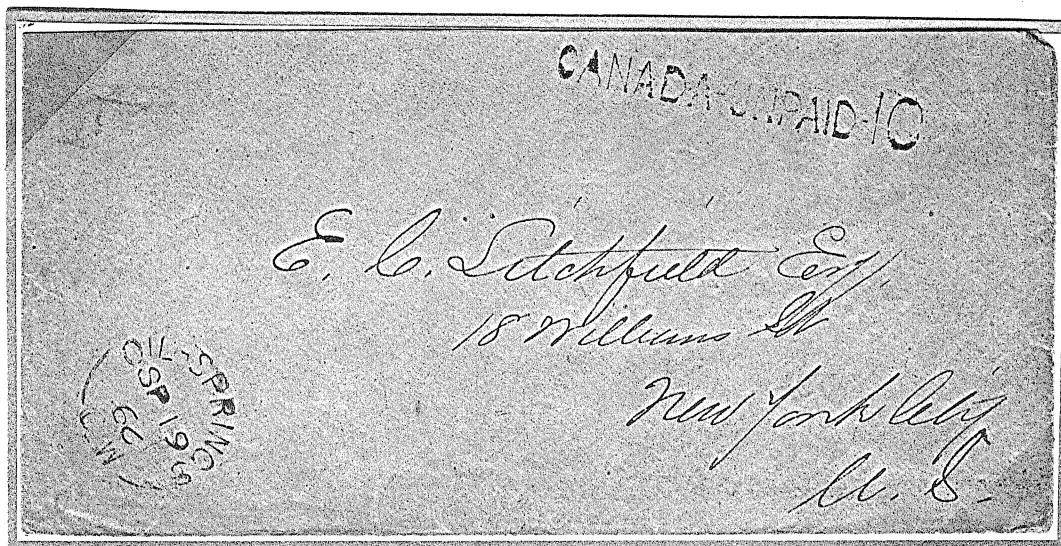 CANADA-UNPAID-10
E. C. Litchfield Esq.
18 Williams St
New York City
U. S.
OIL-SPRINGS
SP 19
66
C.W